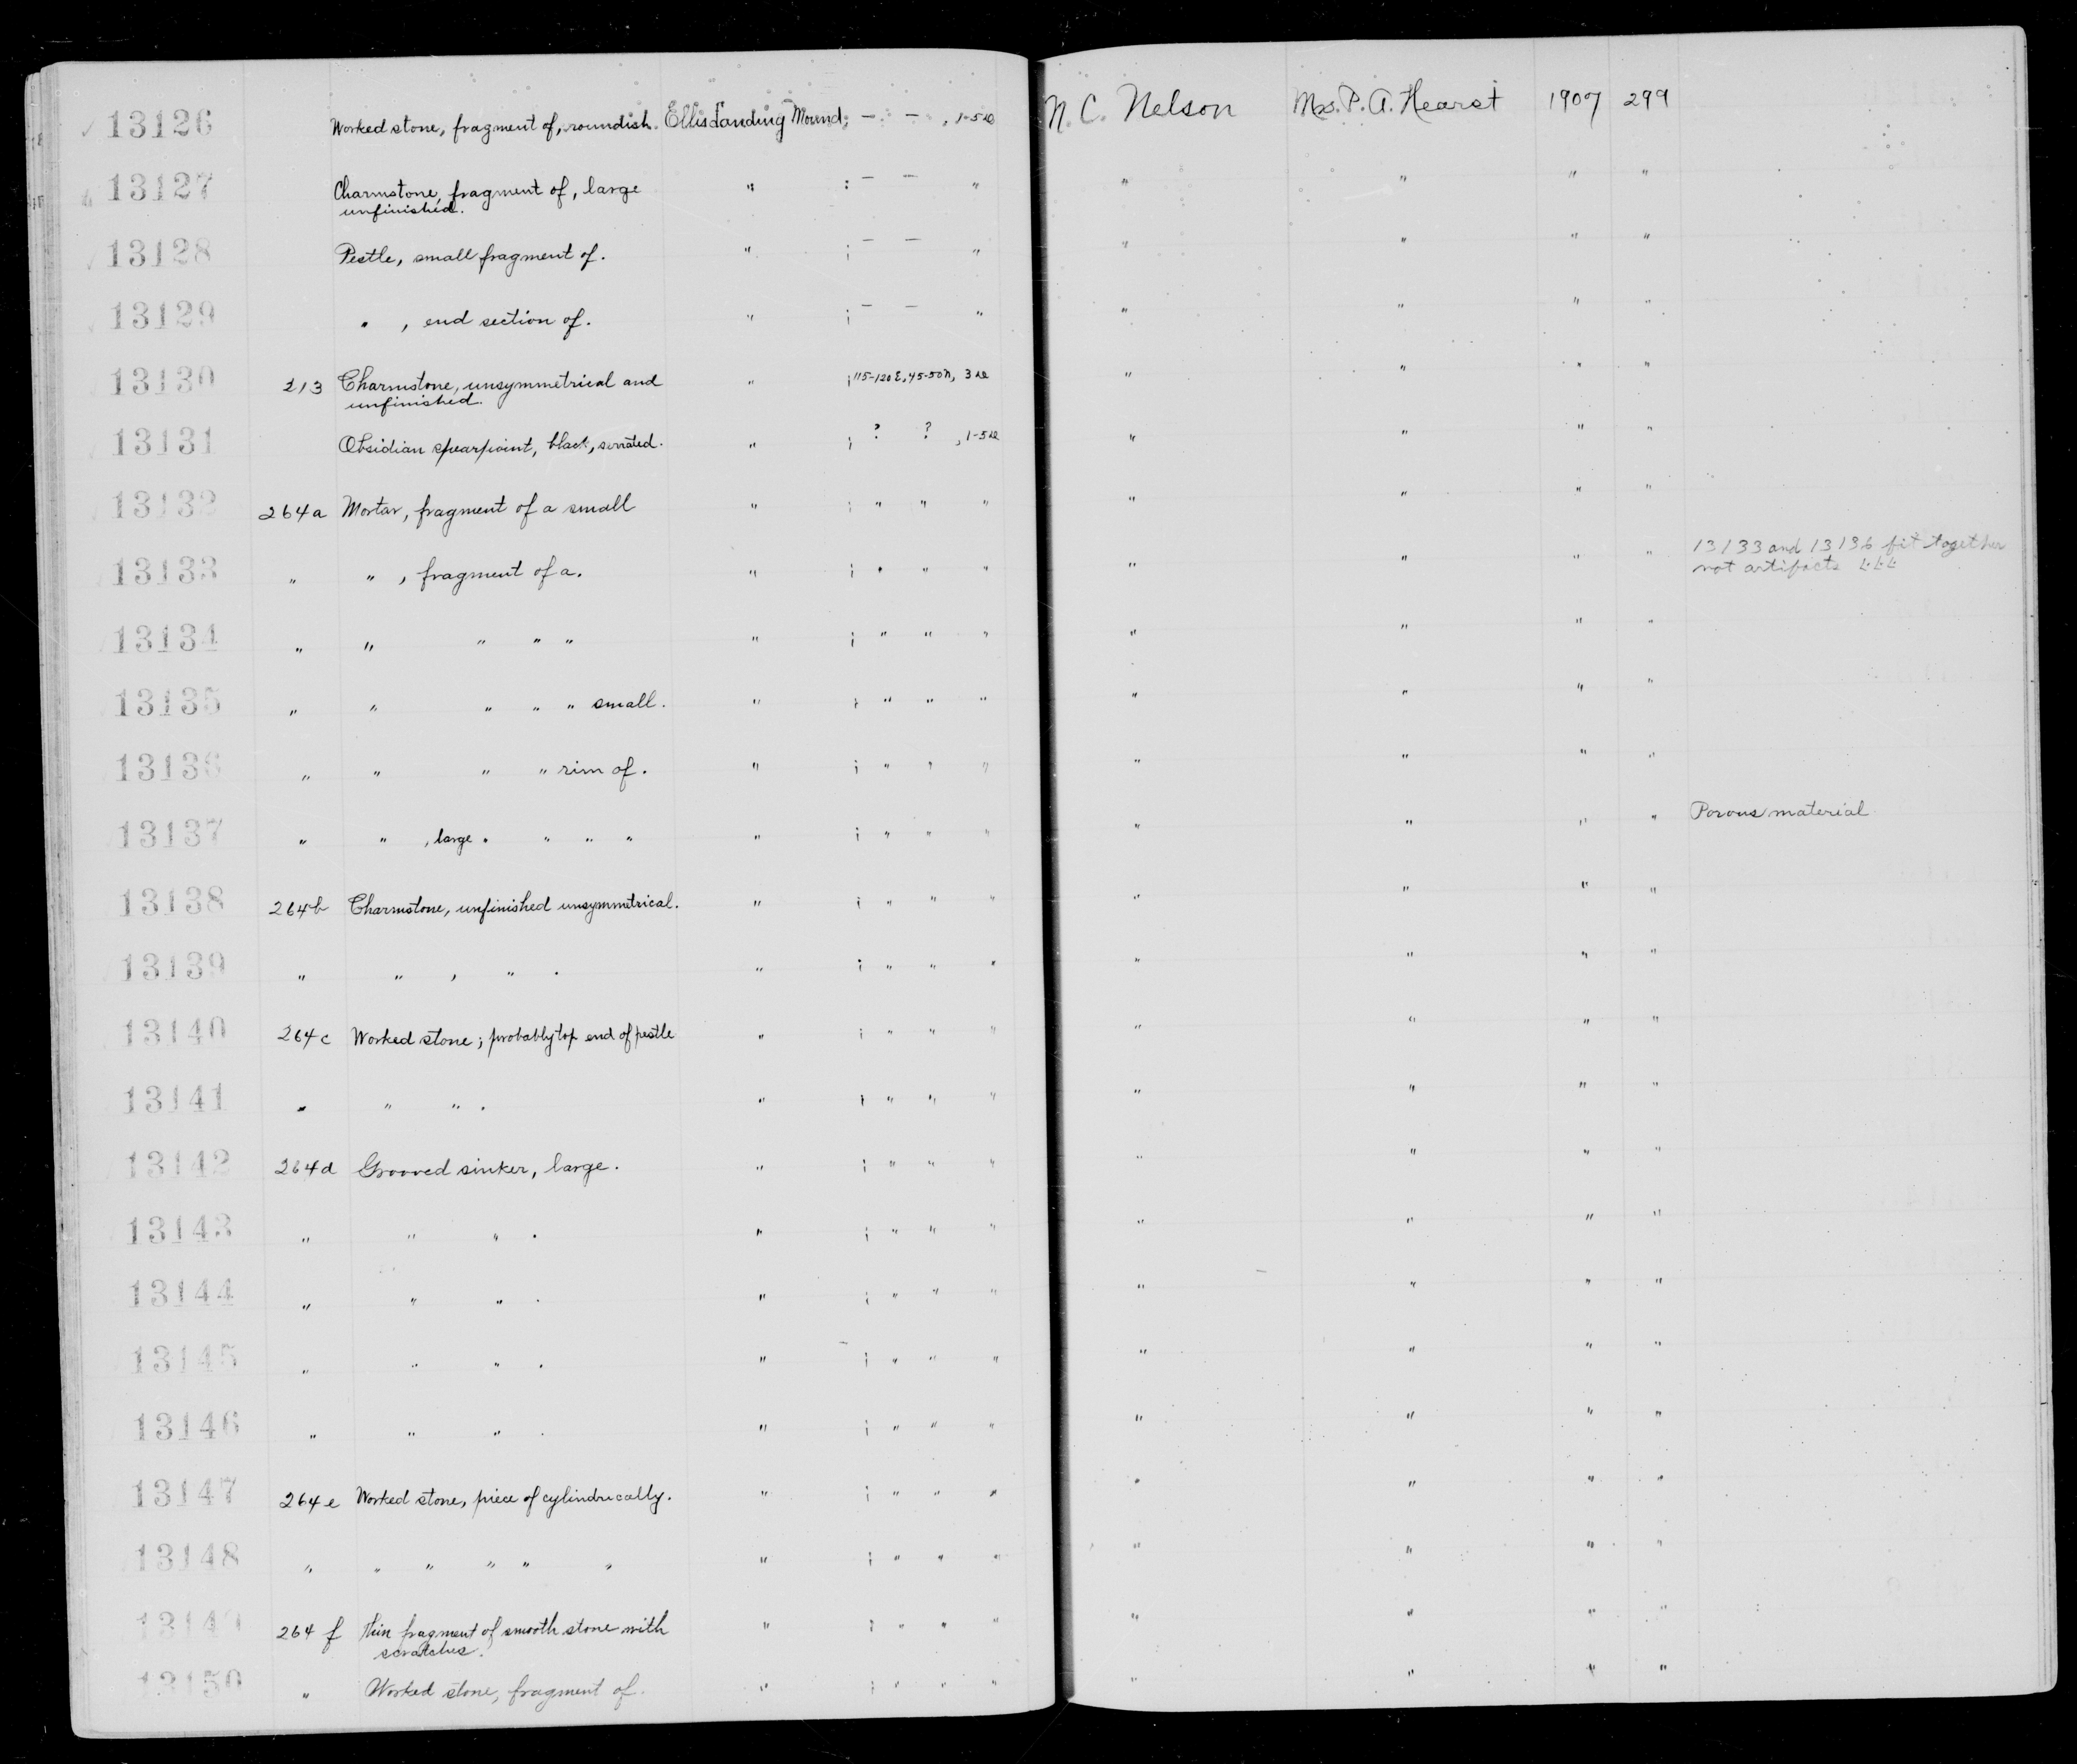 13126 Worked stone, fragment of, roundish. Ellis Landing Mound; — — , 1-5 N. C. Nelson Mrs. P. A. Hearst 1907 299
13127 Charmstone, fragment of, large " ; — — " " " " "
unfinished.
13128 Pestle, small fragment of. " ; — — " " " " "
13129 " , end section of. " ; — — " " " " "
13130 213 Charmstone, unsymmetrical and " ; 115-120 E, 45-50 N, 3 " " " "
unfinished.
13131 Obsidian spearpoint, black, serrated. " ; ? ? , 1-5 " " " "
13132 264a Mortar, fragment of a small " ; " " " " " " "
13133 " " , fragment of a. " ; " " " " " " " 13133 and 13136 fit together
not artifacts
13134 " " " " " " ; " " " " " " "
13135 " " " " " small. " ; " " " " " " "
13136 " " " " rim of. " ; " " " " " " "
13137 " " , large " " " " " ; " " " " " " " Porous material
13138 264b Charmstone, unfinished unsymmetrical. " ; " " " " " " "
13139 " " , " . " ; " " " " " " "
13140 264c Worked stone; probably top end of pestle " ; " " " " " " "
13141 " " " . " ; " " " " " " "
13142 264d Grooved sinker, large. " ; " " " " " " "
13143 " " " . " ; " " " " " " "
13144 " " " . " ; " " " " " " "
13145 " " " . " ; " " " " " " "
13146 " " " . " ; " " " " " " "
13147 264e Worked stone, piece of cylindrically. " ; " " " " " " "
13148 " " " " " " " ; " " " " " " "
13149 264f Thin fragment of smooth stone with " ; " " " " " " "
scratches.
13150 " Worked stone, fragment of. " ; " " " " " " "